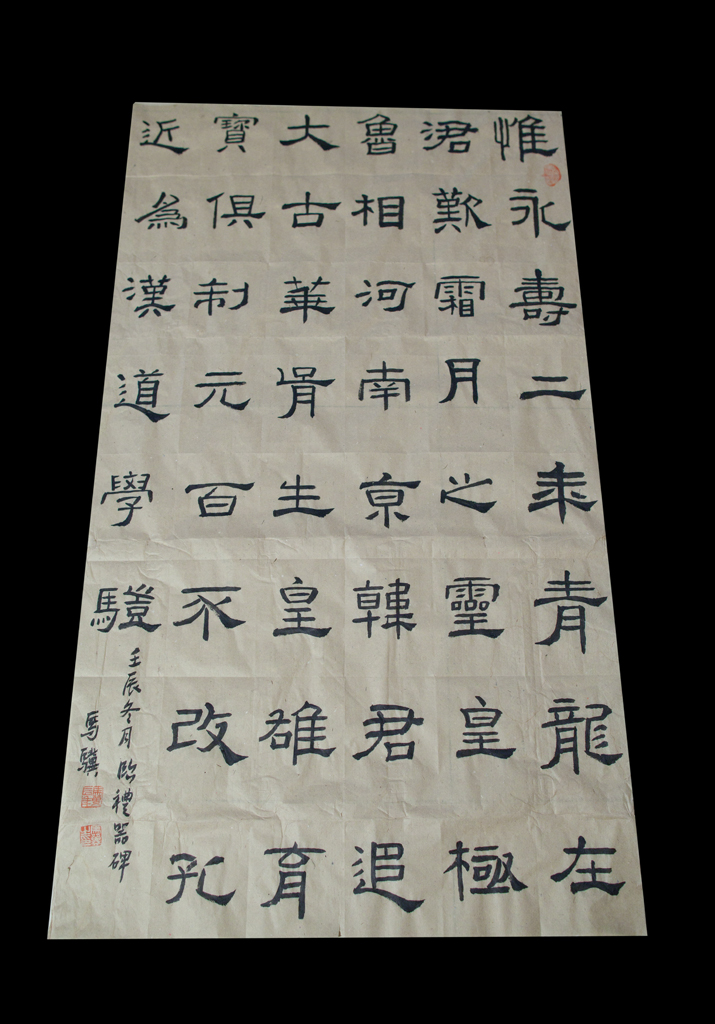 惟永壽二年青龍在
涒歎霜月之靈皇極
魯相河南京韓君追
大古華胥生皇雄育
寶俱制元百不改孔
近為漢道學䭲
壬辰冬月臨禮器碑
馬驥